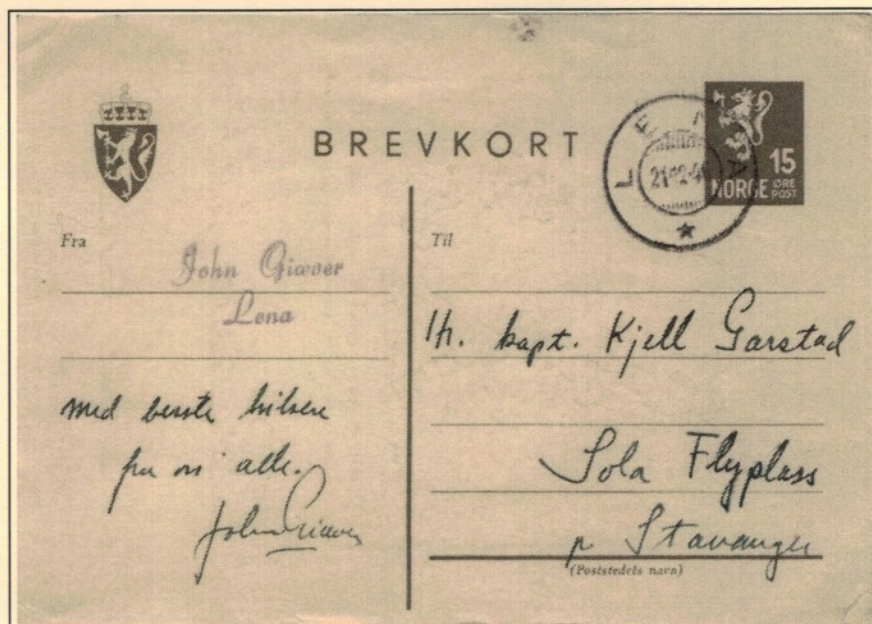 BREVKORT
15
NORGE ØRE
POST
Fra
John Giæver
Lena
med beste hilsen
fra oss alle.
John Giæver
Til
Hr. kapt. Kjell Garstad
Sola Flyplass
pr Stavanger
(Poststedets navn)